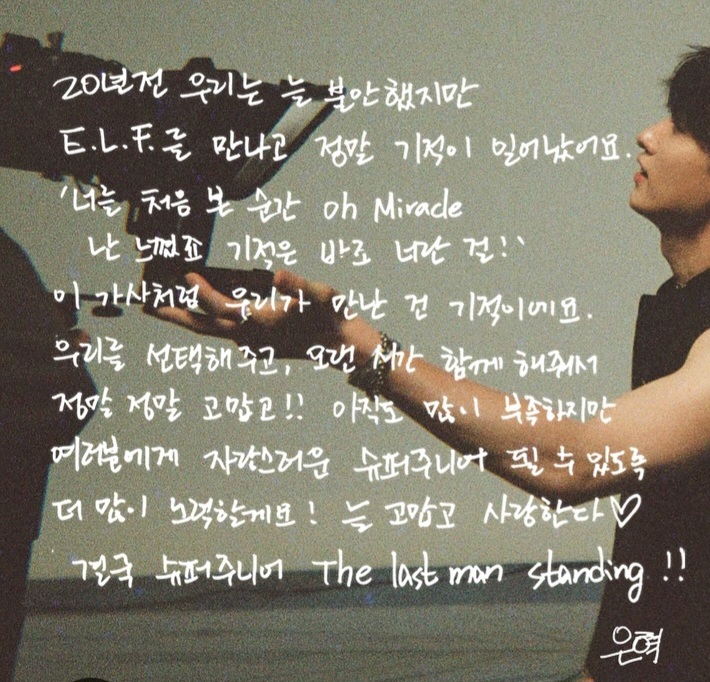 20년전 우리는 늘 불안했지만
E.L.F.를 만나고 정말 기적이 일어났어요.
'너를 처음 본 순간 Oh Miracle
난 느꼈죠 기적은 바로 너란 걸!'
이 가사처럼 우리가 만난 건 기적이에요.
우리를 선택해주고, 오랜 시간 함께 해줘서
정말 정말 고맙고!! 아직도 많이 부족하지만
여러분에게 자랑스러운 슈퍼주니어 될 수 있도록
더 많이 노력할게요! 늘 고맙고 사랑한다♡
결국 슈퍼주니어 The last man standing !!
은혁